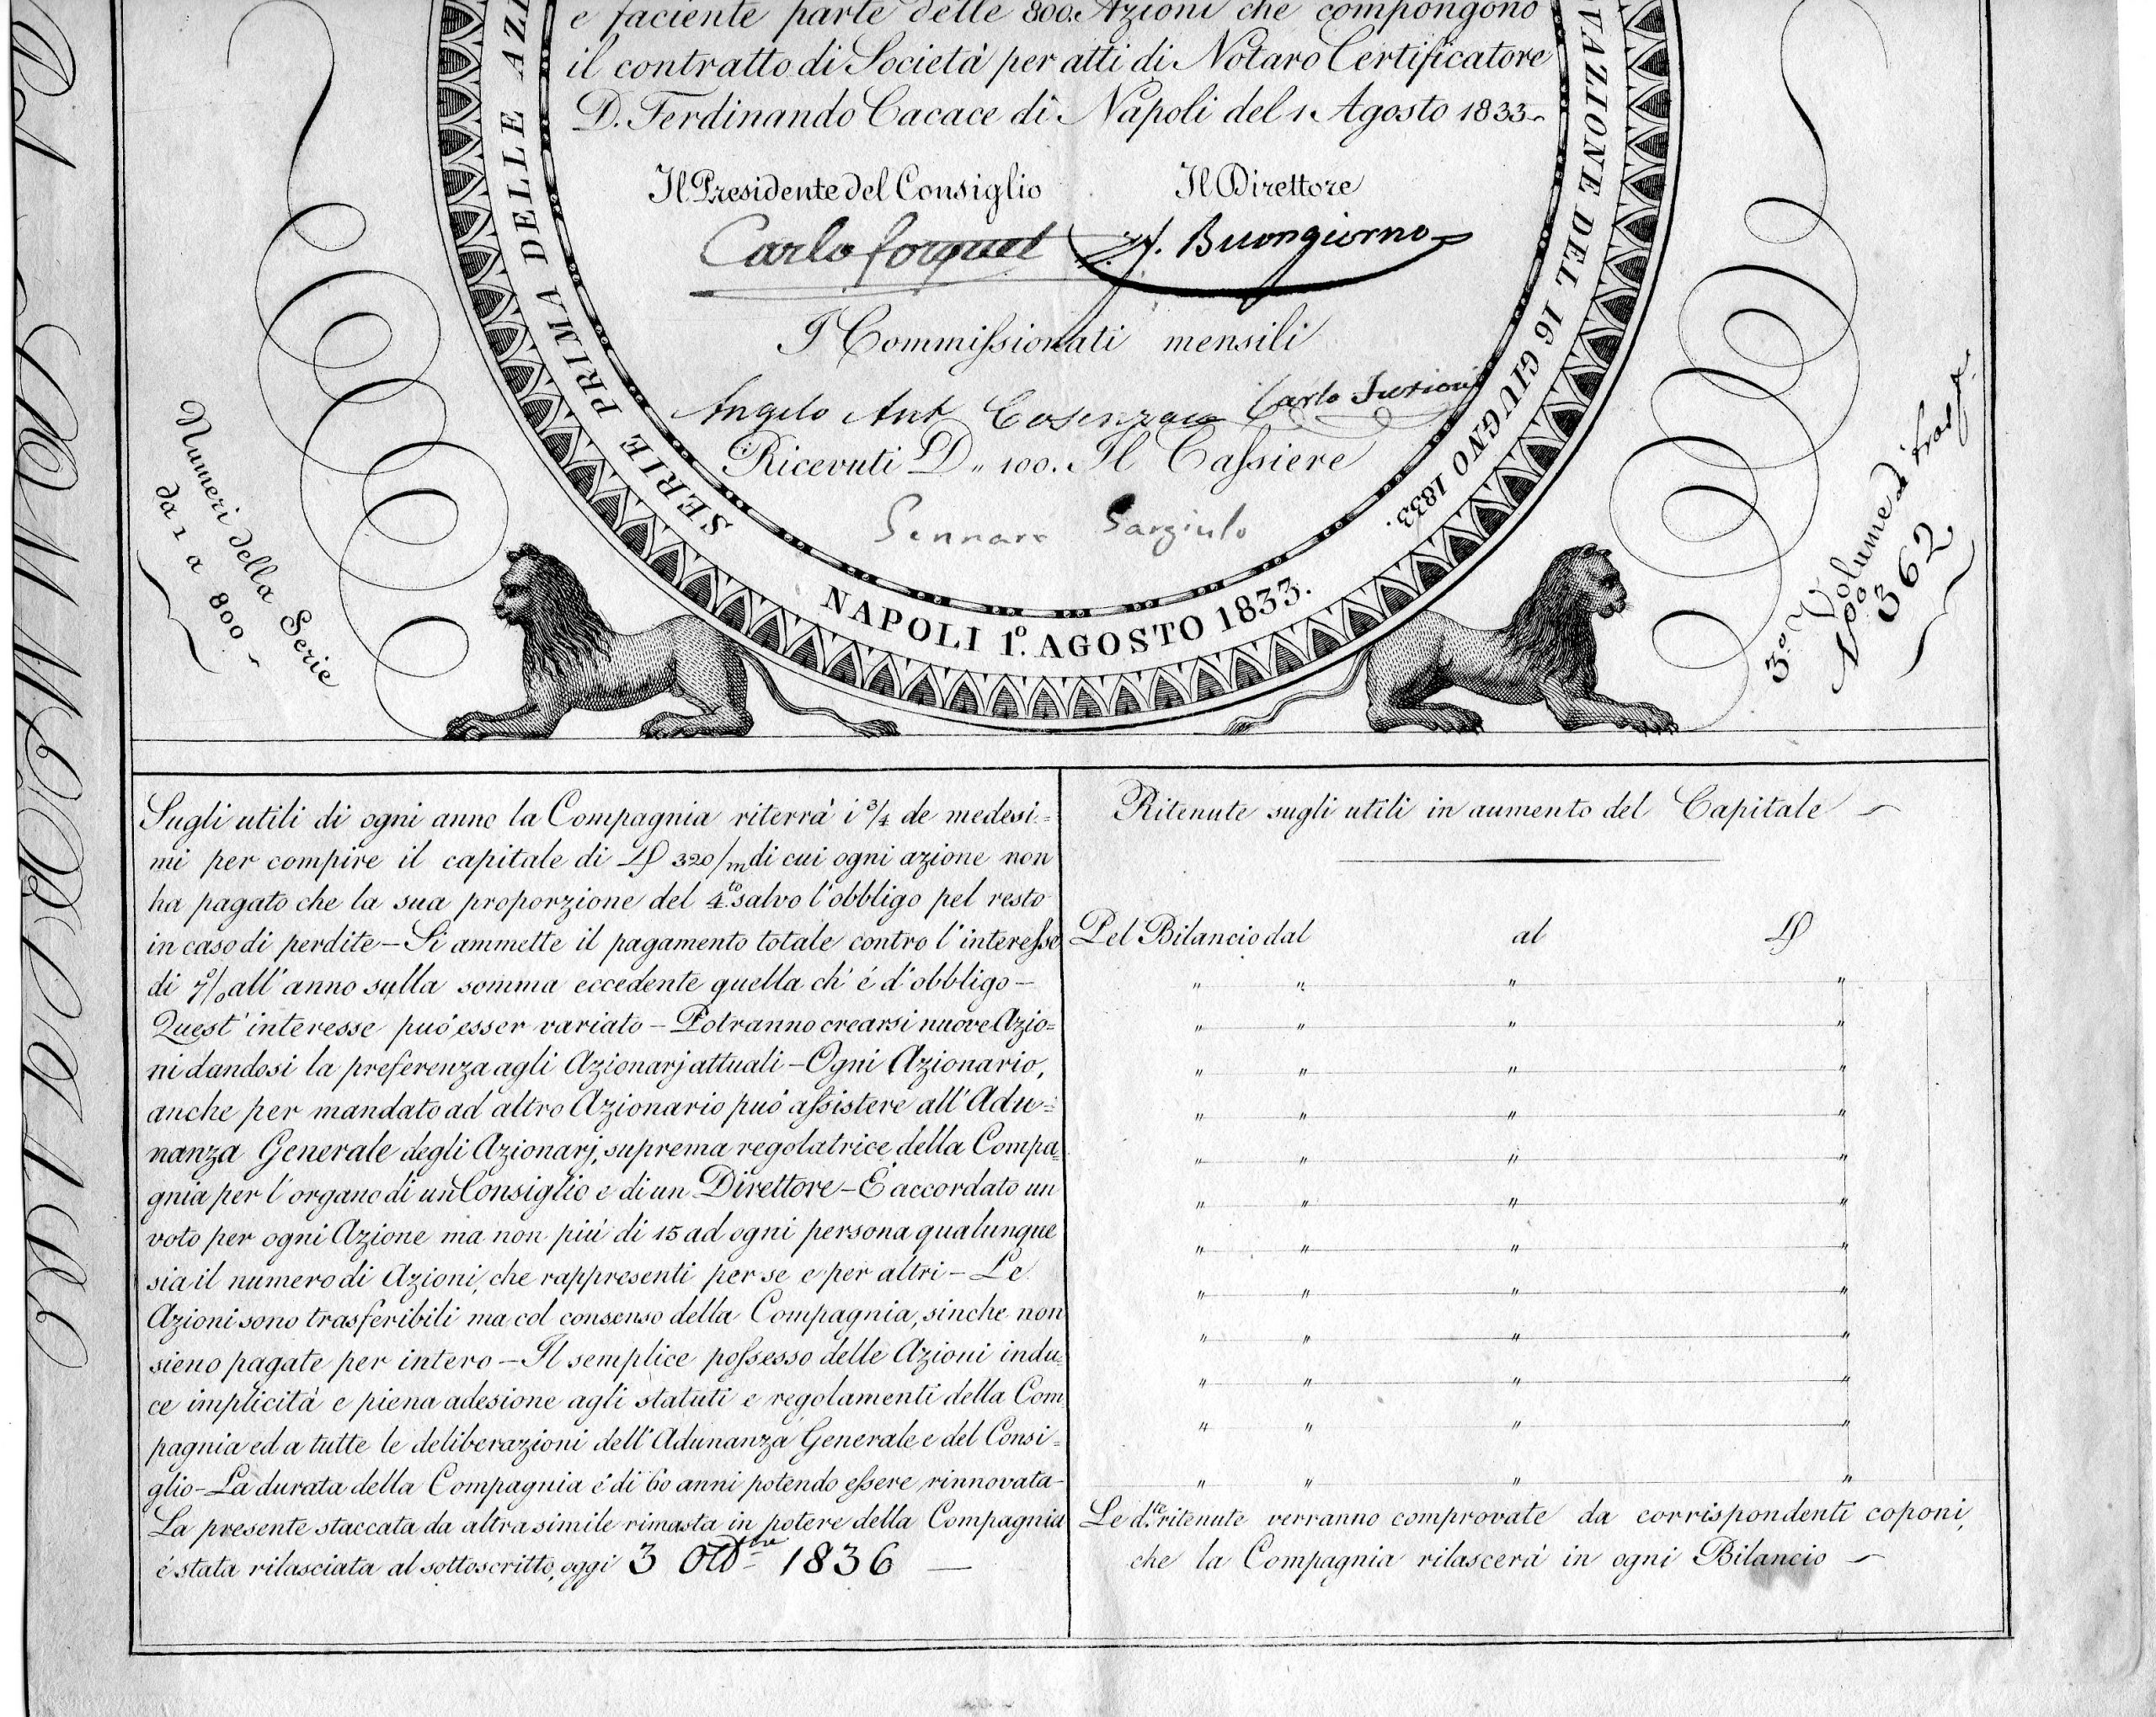 e faciente parte delle 800. Azioni che compongono
il contratto di Società per atti di Notaro Certificatore
D. Ferdinando Cacace di Napoli del 1. Agosto 1833
Il Presidente del Consiglio
Il Direttore
Carlo Forquet
Buongiorno
I Commissionati mensili
Angelo Ant Cosenza
Carlo
Ricevuti D. 100. Il Cassiere
Gennaro Gargiulo
SERIE PRIMA DELLE AZI
NAPOLI 1º. AGOSTO 1833.
VAZIONE DEL 16 GIUGNO 1833.
Numeri della Serie
da 1 a 800
3º Volume di trasf.
Nº 362
Sugli utili di ogni anno la Compagnia riterrà i 3/4 de medesi=
mi per compire il capitale di D 320/m di cui ogni azione non
ha pagato che la sua proporzione del 4.to salvo l'obbligo pel resto
in caso di perdite – Si ammette il pagamento totale contro l'interesse
di % all'anno sulla somma eccedente quella ch'é d'obbligo –
Quest'interesse può esser variato – Potranno crearsi nuove Azio=
ni dandosi la preferenza agli Azionarj attuali – Ogni Azionario,
anche per mandato ad altro Azionario può assistere all'Adu=
nanza Generale degli Azionarj, suprema regolatrice della Compa=
gnia per l'organo di un Consiglio e di un Direttore – É accordato un
voto per ogni Azione ma non più di 15 ad ogni persona qualunque
sia il numero di Azioni, che rappresenti per se e per altri – Le
Azioni sono trasferibili ma col consenso della Compagnia, sinche non
sieno pagate per intero – Il semplice possesso delle Azioni indu=
ce implicità e piena adesione agli statuti e regolamenti della Com
pagnia ed a tutte le deliberazioni dell'Adunanza Generale e del Consi=
glio – La durata della Compagnia é di 60 anni potendo essere rinnovata –
La presente staccata da altra simile rimasta in potere della Compagnia
é stata rilasciata al sottoscritto, oggi 3 Ottbre 1836 —
Ritenute sugli utili in aumento del Capitale
Pel Bilancio dal al D
" " " "
" " " "
" " " "
" " " "
" " " "
" " " "
" " " "
" " " "
" " " "
" " " "
" " " "
" " " "
Le d.tte ritenute verranno comprovate da corrispondenti coponi,
che la Compagnia rilascerà in ogni Bilancio